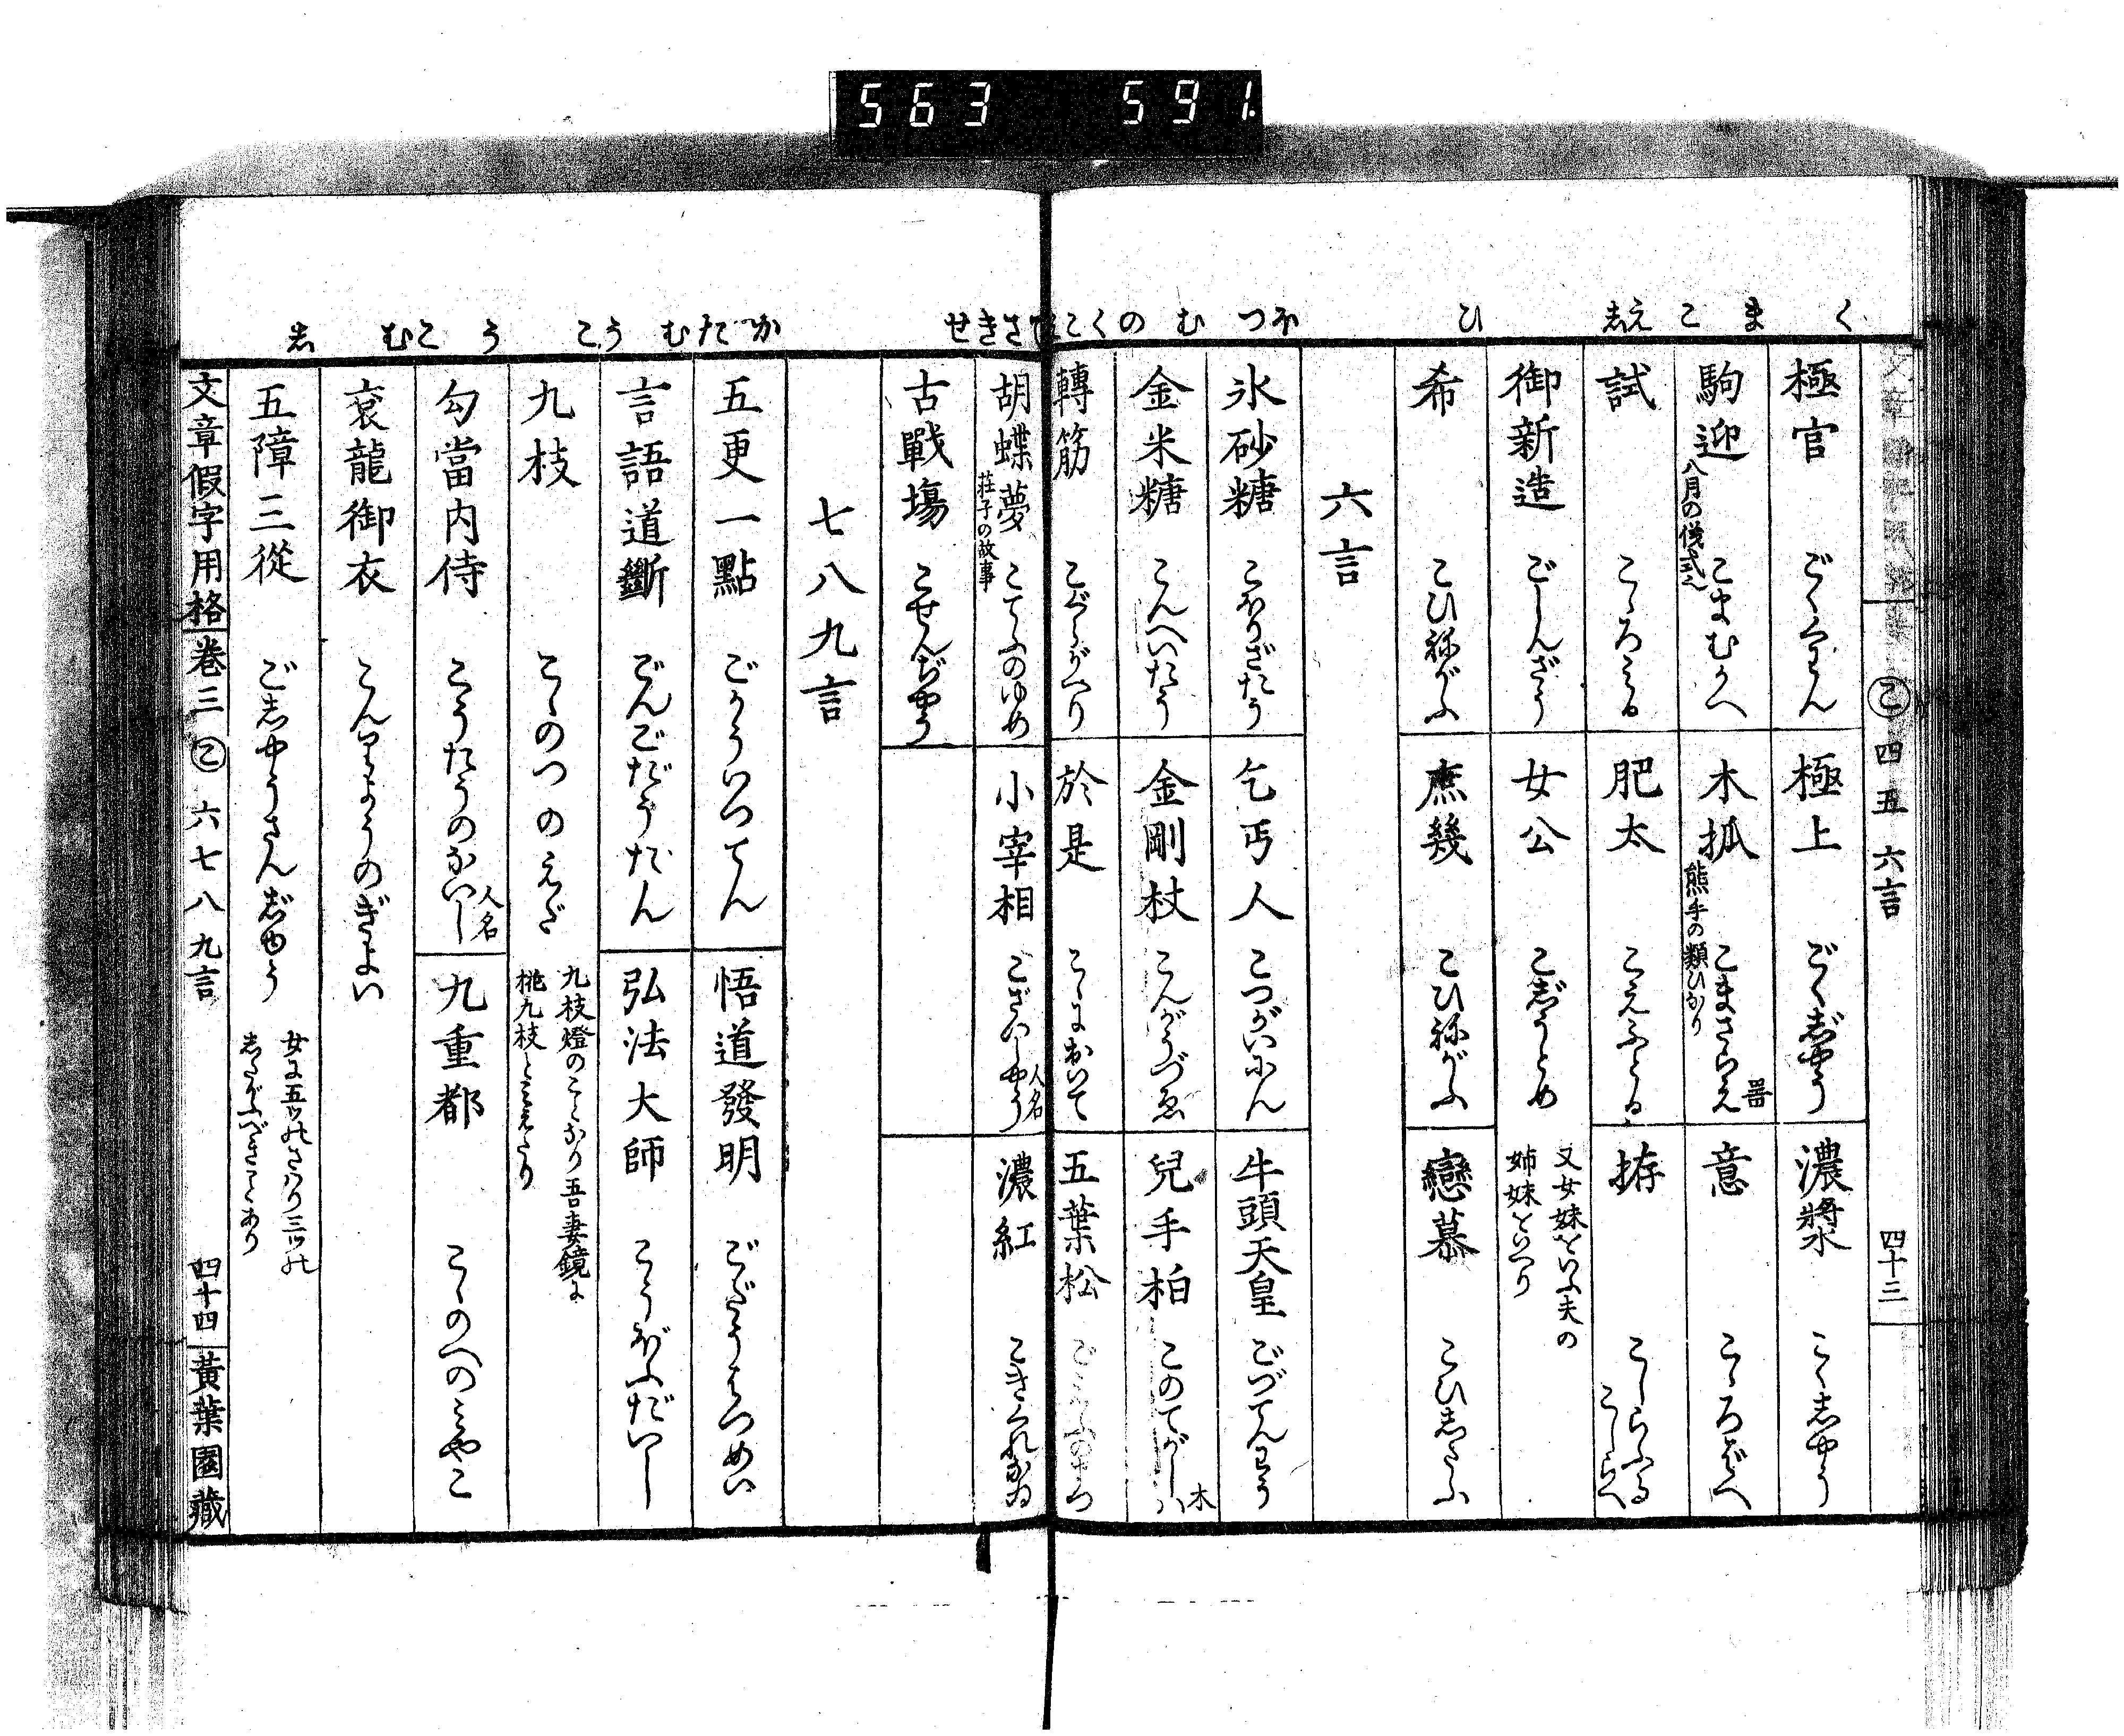 563 591.
く ま こ え志 ひ ほつ む の くこ
四五六言 四十三
極官 ごくくわん 極上 ごくじやう 濃漿 こくしやう
駒迎 八月の儀式 こまむかへ 木抓 熊手の類ひなり こまさらえ 器 意 こゝろばへ
試 こゝろみる 肥太 こえふとる 拵 こしらふる こしらへ
御新造 ごしんざう 女公 こじうとめ 又女妹をいふ夫の姉妹をいへり
希 こひねがふ 庶幾 こひねがふ 戀慕 こひしたふ
六言
氷砂糖 こほりざたう 乞丐人 こつがいにん 牛頭天皇 ごづてんわう
金米糖 こんへいたう 金剛杖 こんがうづゑ 兒手柏 このてがしハ 木
轉筋 こむらがへり 於是 こゝにおいて 五葉松
さきせ かだむうこ う こむ 志
胡蝶夢 荘子の故事 こてふのゆめ 小宰相 こざいしやう 人名 濃紅 こきくれなゐ
古戰塲 こせんぢやう
七八九言
五更一點 ごかういつてん 悟道發明 ごだうはつめい
言語道斷 ごんごだうだん 弘法大師 こうぼふだいし
九枝 こゝのつのえだ 九枝燈のことなり吾妻鏡に桃九枝とみえたり
勾當内侍 こうたうのないし 人名 九重都 こゝのへのみやこ
袞龍御衣 こんりようのぎよい
五障三從 ごしやうさんじゆう 女に五ツのさはり三ツのしたがふべきことあり
文章假字用格 卷三 こ 六七八九言 四十四 黄葉園藏